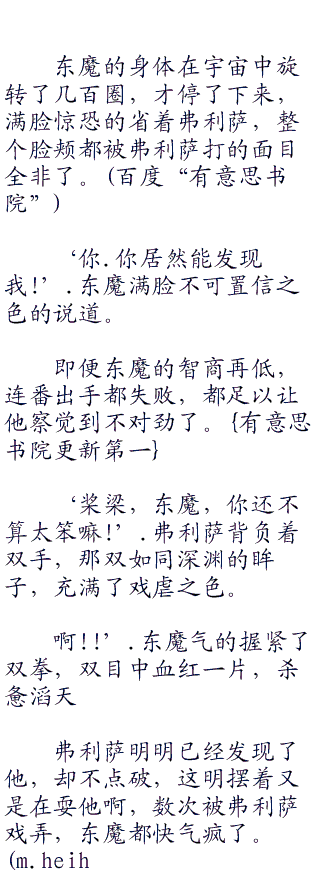 东魔的身体在宇宙中旋
转了几百圈，才停了下来，
满脸惊恐的省着弗利萨，整
个脸颊都被弗利萨打的面目
全非了。(百度“有意思书
院”)
‘你.你居然能发现
我!’.东魔满脸不可置信之
色的说道。
即便东魔的智商再低，
连番出手都失败，都足以让
他察觉到不对劲了。{有意思
书院更新第一}
‘桨梁，东魔，你还不
算太笨嘛!’.弗利萨背负着
双手，那双如同深渊的眸
子，充满了戏虐之色。
啊!!’.东魔气的握紧了
双拳，双目中血红一片，杀
惫滔天
弗利萨明明已经发现了
他，却不点破，这明摆着又
是在耍他啊，数次被弗利萨
戏弄，东魔都快气疯了。
(m.heih